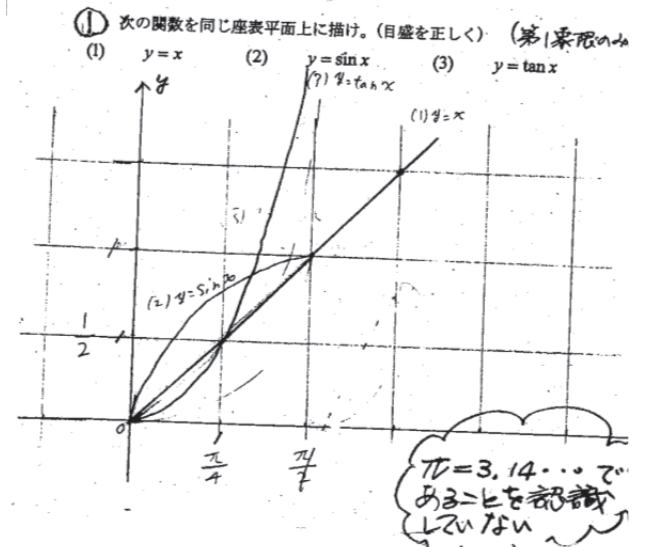 ① 次の関数を同じ座表平面上に描け。(目盛を正しく) (第1象限のみ
(1) y = x (2) y = sin x (3) y = tan x
y
(3) y=tan x
(1) y=x
(2) y=sin x
1
1/2
0
π/4
π/2
π=3.14…で
あることを認識
していない